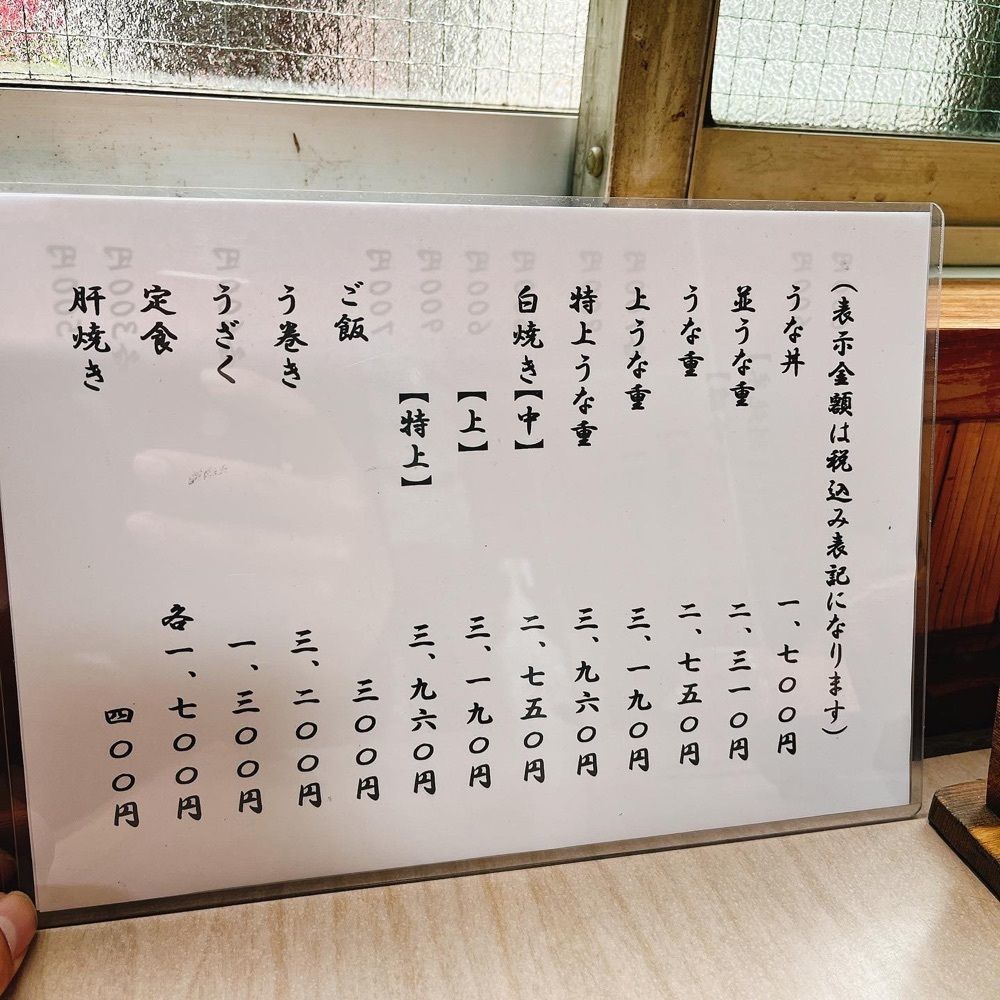 （表示金額は税込み表記になります）
うな丼 一、七〇〇円
並うな重 二、三一〇円
うな重 二、七五〇円
上うな重 三、一九〇円
特上うな重 三、九六〇円
白焼き【中】 二、七五〇円
【上】 三、一九〇円
【特上】 三、九六〇円
ご飯 三〇〇円
う巻き 三、二〇〇円
うざく 一、三〇〇円
定食 各一、七〇〇円
肝焼き 四〇〇円